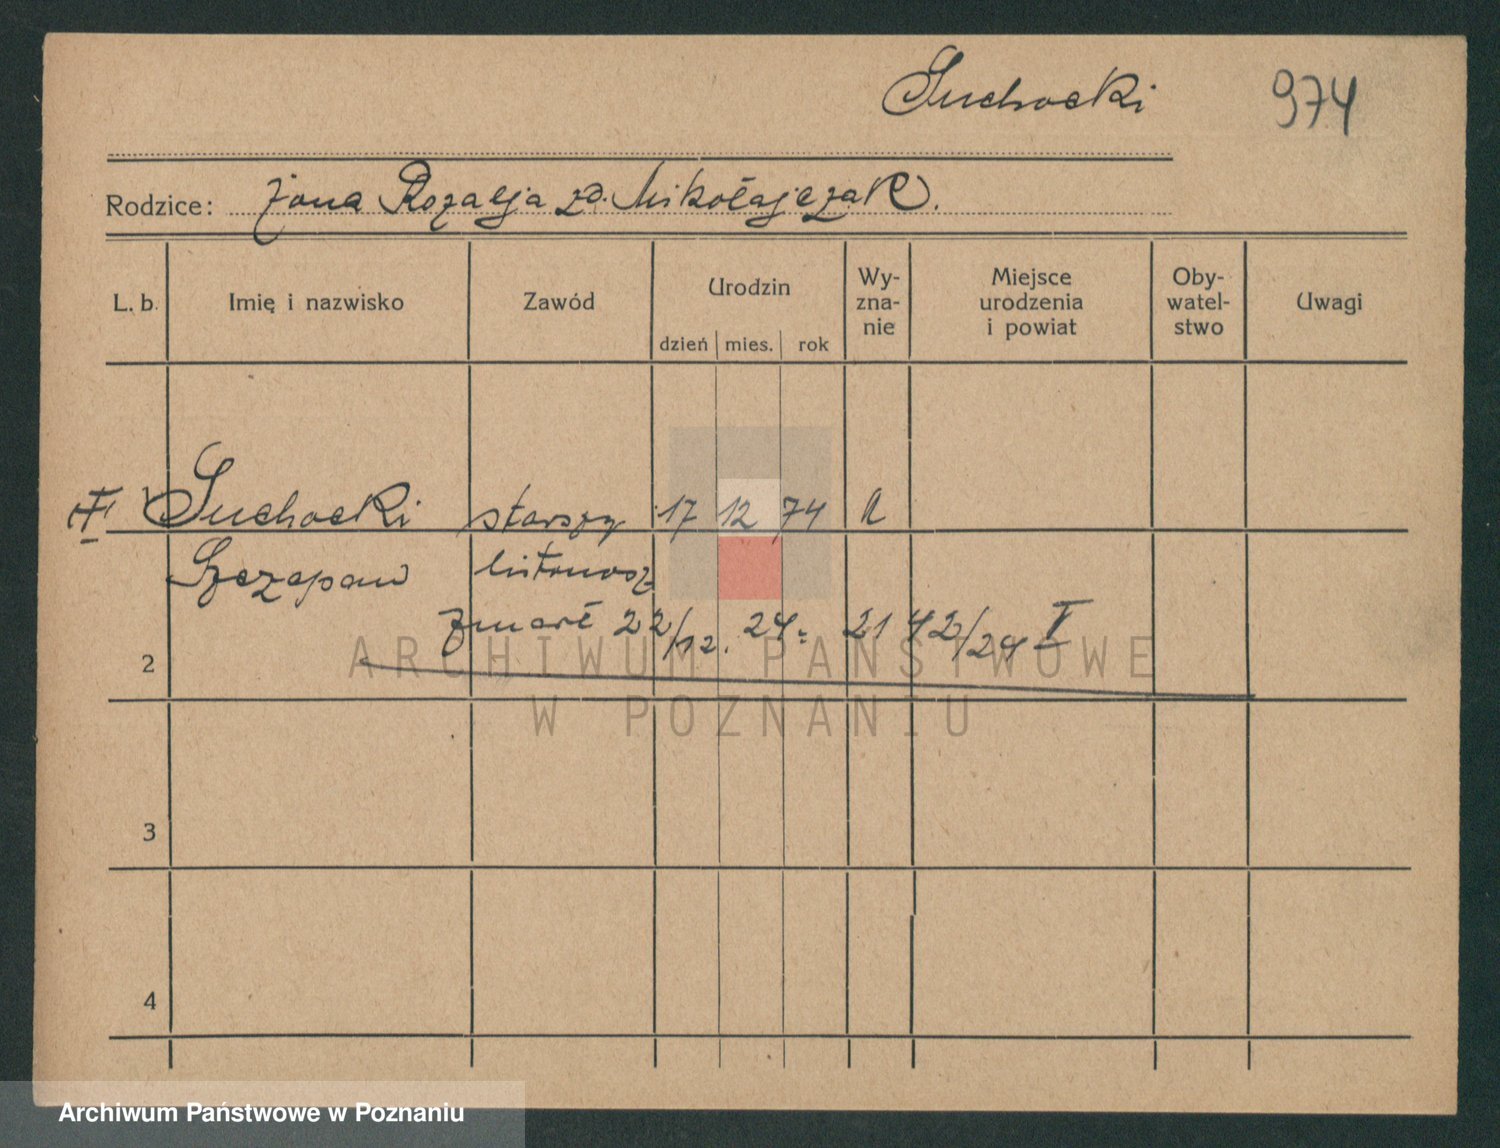 Suchocki 974
Rodzice: żona Rozalja zd. Mikołajczak.
L. b. Imię i nazwisko Zawód Urodzin dzień mies. rok Wy-zna-nie Miejsce urodzenia i powiat Oby-watel-stwo Uwagi
1 Suchocki starszy 17 12 74 k
Szczepan listonosz
zmarł 22/12. 24. 2142/24 V
2
3
4
ARCHIWUM PAŃSTWOWE
W POZNANIU
Archiwum Państwowe w Poznaniu